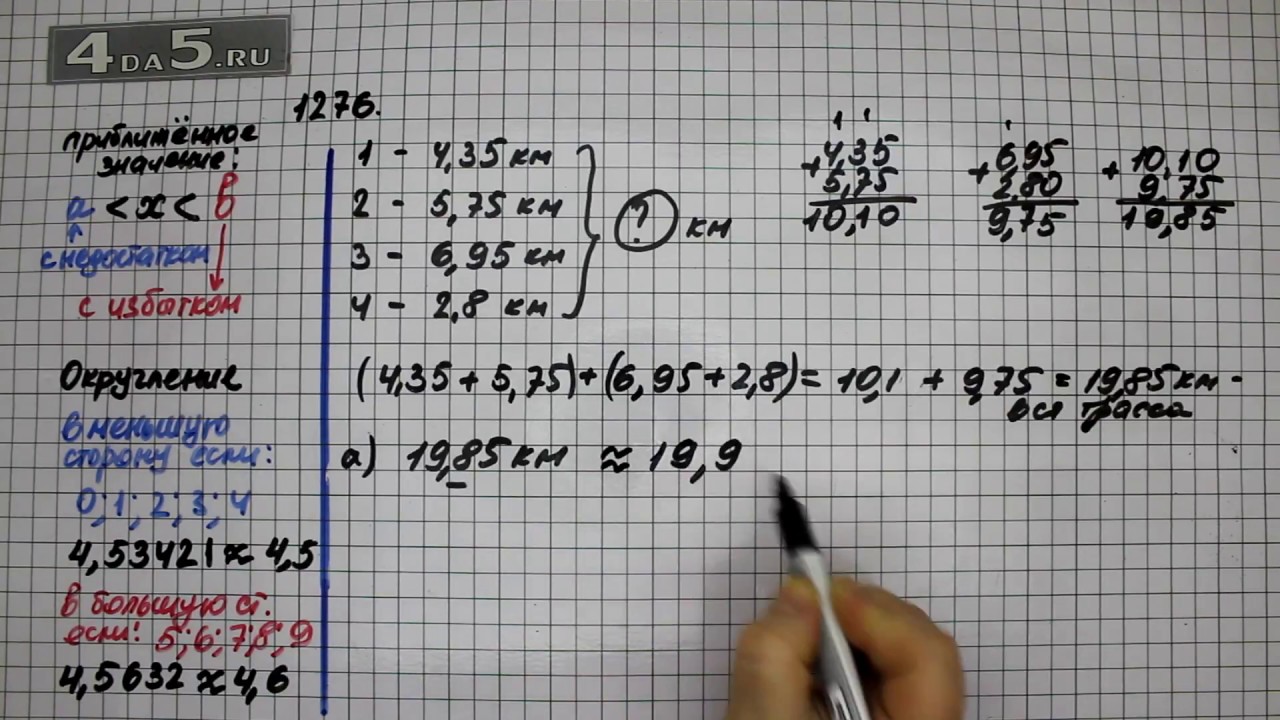 4DA5.RU
1276.
приближённое
значение:
a < x < b
с недостатком
с избытком
Округление
в меньшую
сторону если:
0; 1; 2; 3; 4
4,53421 ≈ 4,5
в большую ст.
если: 5; 6; 7; 8; 9
4,5632 ≈ 4,6
1 - 4,35 км
2 - 5,75 км
3 - 6,95 км
4 - 2,8 км
? км
1 1
+ 4,35
5,75
10,10
1
+ 6,95
2,80
9,75
+ 10,10
9,75
19,85
(4,35 + 5,75) + (6,95 + 2,8) = 10,1 + 9,75 = 19,85 км -
вся трасса
а) 19,85 км ≈ 19,9